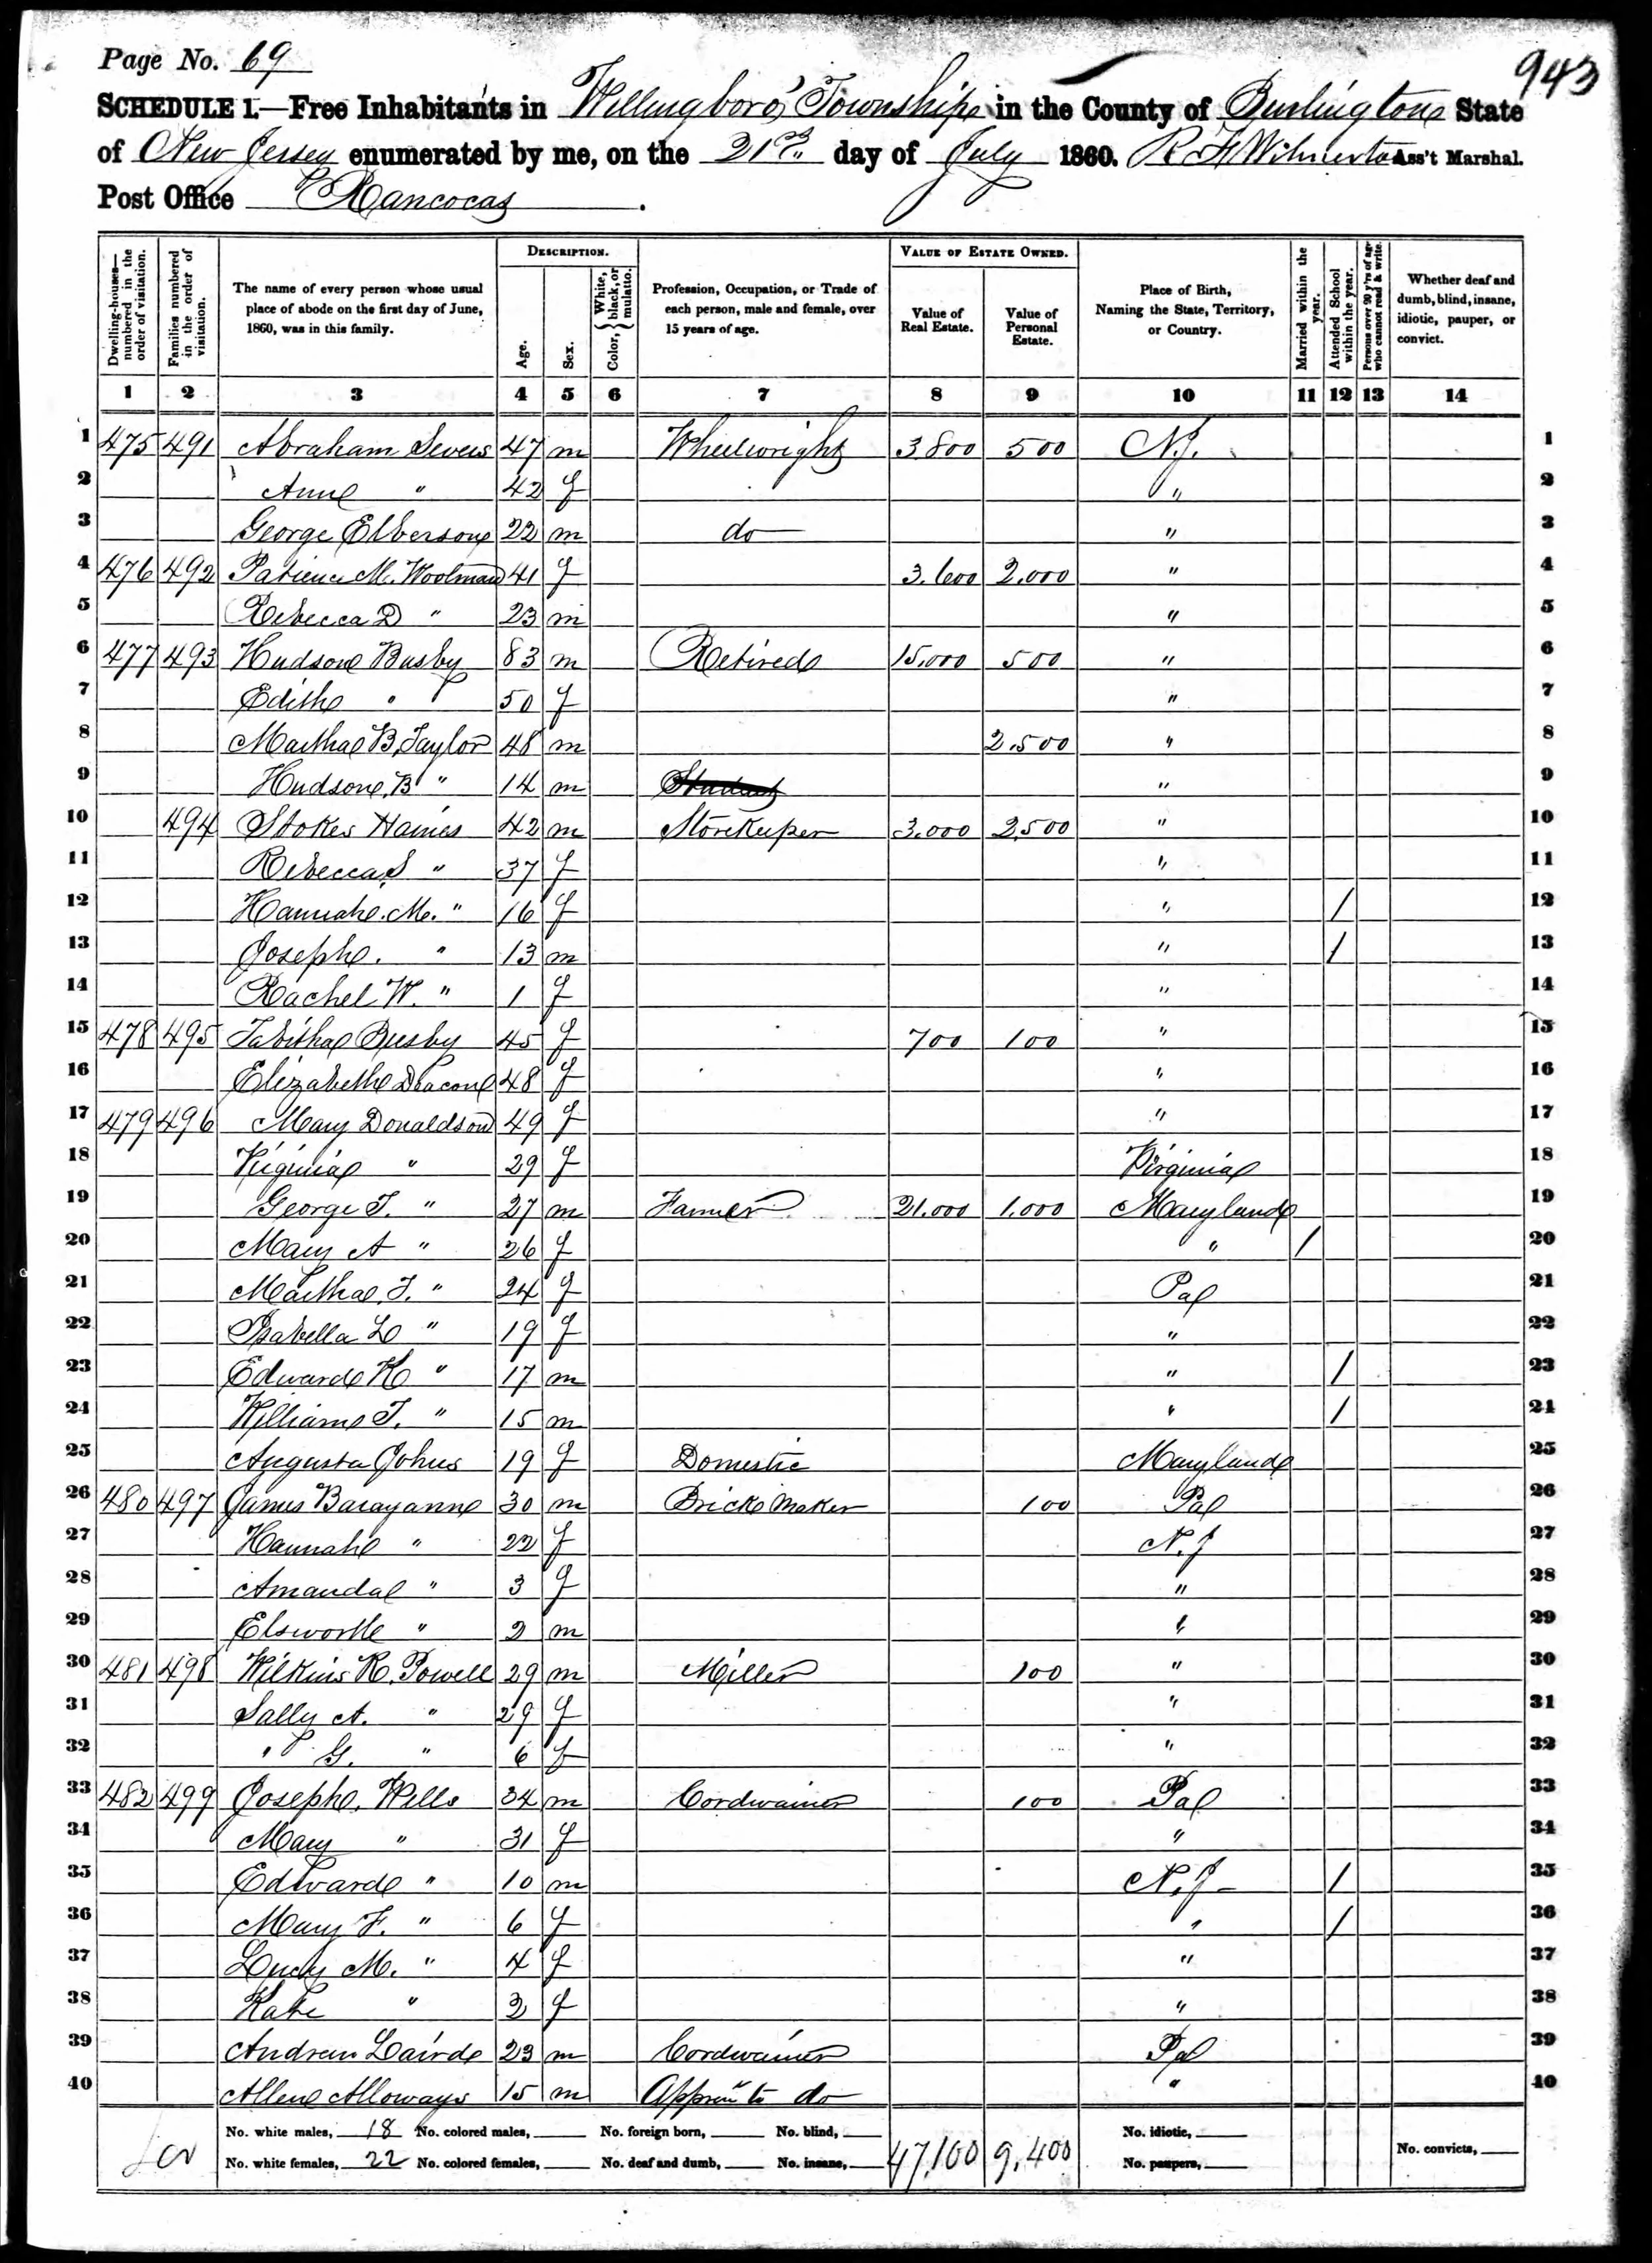 943
Page No. 69
SCHEDULE 1.—Free Inhabitants in Willingboro' Township in the County of Burlington State
of New Jersey enumerated by me, on the 21st day of July 1860. Ass't Marshal.
Post Office Rancocas.
Dwelling-houses—numbered in the order of visitation. Families numbered in the order of visitation. The name of every person whose usual place of abode on the first day of June, 1860, was in this family. DESCRIPTION. Age. Sex. Color, { White, black, or mulatto. Profession, Occupation, or Trade of each person, male and female, over 15 years of age. VALUE OF ESTATE OWNED. Value of Real Estate. Value of Personal Estate. Place of Birth, Naming the State, Territory, or Country. Married within the year. Attended School within the year. Persons over 20 y'rs of age who cannot read & write. Whether deaf and dumb, blind, insane, idiotic, pauper, or convict.
1 2 3 4 5 6 7 8 9 10 11 12 13 14
1 475 491 Abraham Severs 47 m Wheelwright 3.800 500 N.J. 1
2 Ann " 42 f " 2
3 George Elberson 22 m do " 3
4 476 492 Patience M. Woolman 41 f 3.600 2.000 " 4
5 Rebecca D " 23 m " 5
6 477 493 Hudson Busby 83 m Retired 15.000 500 " 6
7 Edith " 50 f " 7
8 Martha B. Taylor 48 m 2.500 " 8
9 Hudson. B " 14 m Student " 9
10 494 Stokes Haines 42 m Storekeeper 3.000 2.500 " 10
11 Rebecca S " 37 f " 11
12 Hannah. M. " 16 f " / 12
13 Joseph. " 13 m " / 13
14 Rachel W. " 1 f " 14
15 478 495 Tabitha Busby 45 f 700 100 " 15
16 Elizabeth Deacon 48 f " 16
17 479 496 Mary Donaldson 49 f " 17
18 Virginia " 29 f Virginia 18
19 George T. " 27 m Farmer 21.000 1.000 Maryland 19
20 Mary A " 26 f " / 20
21 Martha. T. " 24 f Pa 21
22 Isabella L " 19 f " 22
23 Edward K " 17 m " / 23
24 William T. " 15 m " / 24
25 Augusta Johns 19 f Domestic Maryland 25
26 480 497 James Barayann 30 m Brick Maker 100 Pa 26
27 Hannah " 22 f N.J 27
28 Amanda " 3 f " 28
29 Elsworth " 2 m " 29
30 481 498 Wilkins R. Powell 29 m Miller 100 " 30
31 Sally A. " 29 f " 31
32 " G. " 6 f " 32
33 482 499 Joseph. Wells 34 m Cordwainer 100 Pa 33
34 Mary " 31 f " 34
35 Edward " 10 m N.J / 35
36 Mary F. " 6 f " / 36
37 Lucy M. " 4 f " 37
38 Kate " 2 f " 38
39 Andrew Laird 23 m Cordwainer Pa 39
40 Allen Alloways 15 m to do " 40
No. white males, 18 No. colored males, No. foreign born, No. blind, 47,100 9,400 No. idiotic,
No. white females, 22 No. colored females, No. deaf and dumb, No. insane, No. paupers, No. convicts,